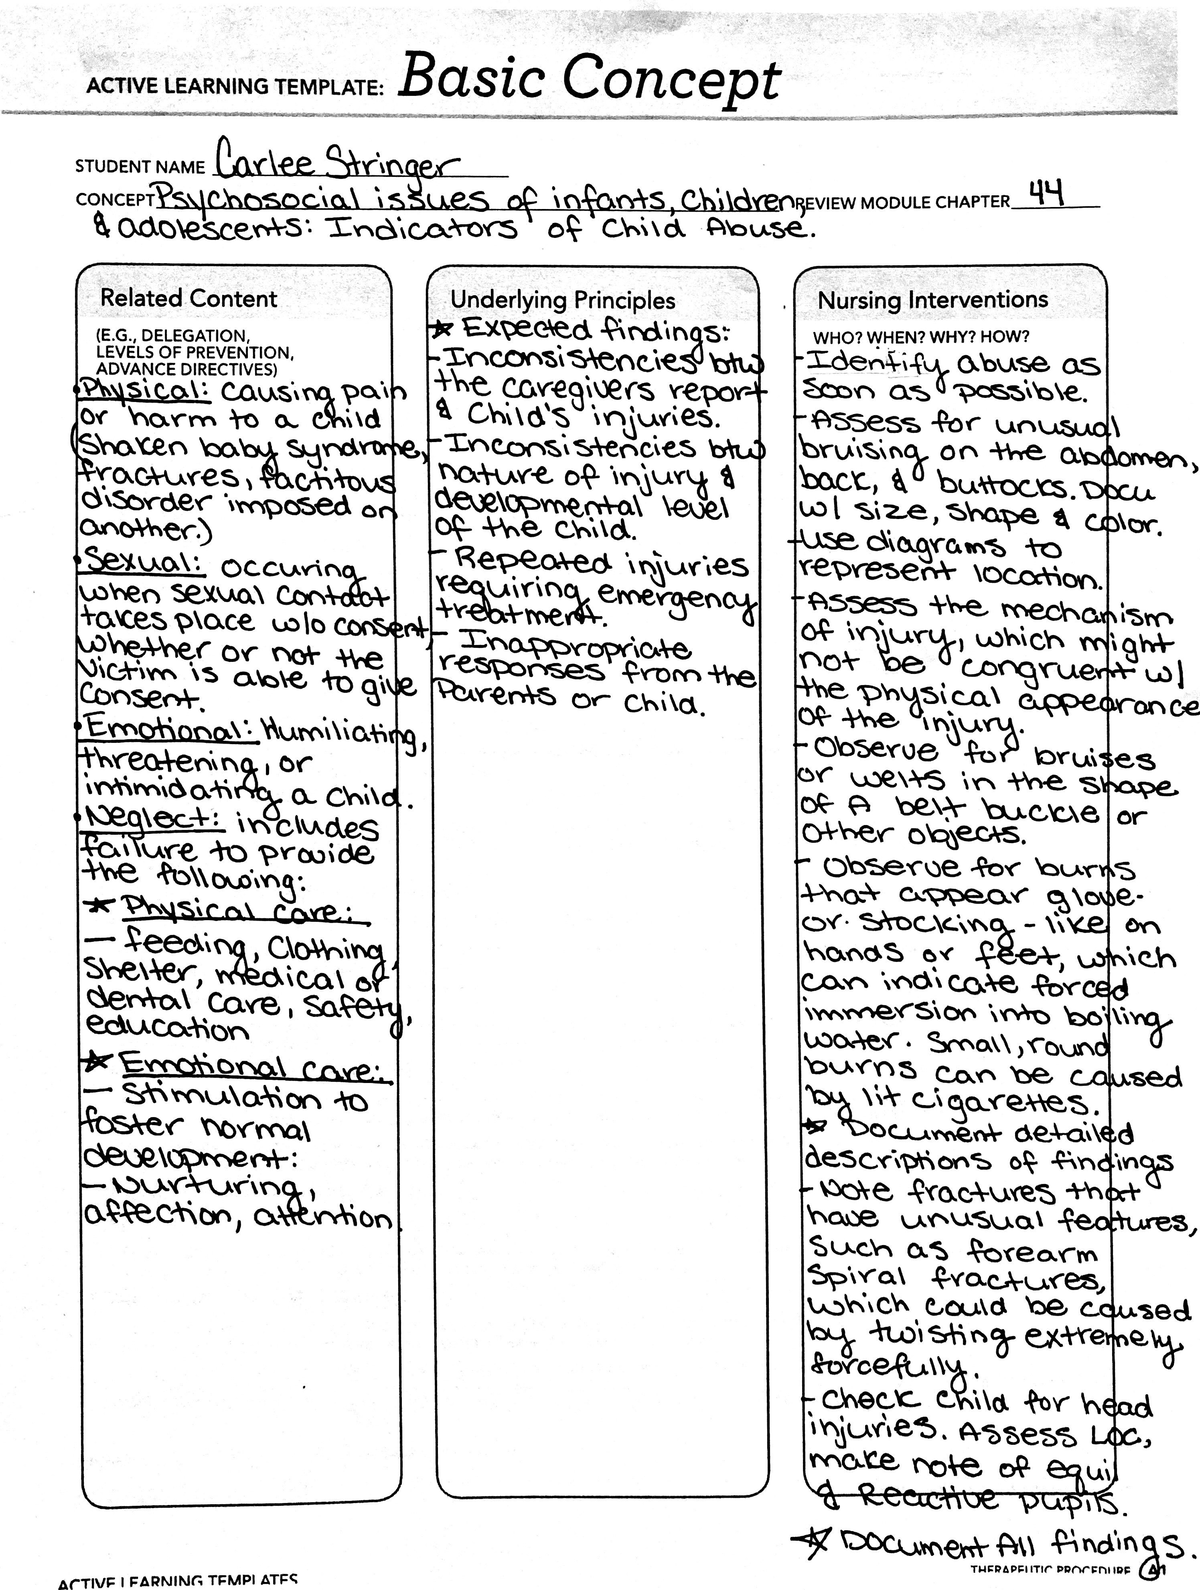 ACTIVE LEARNING TEMPLATE: Basic Concept
STUDENT NAME Carlee Stringer
CONCEPT Psychosocial issues of infants, Children, REVIEW MODULE CHAPTER 44
& adolescents: Indicators of Child Abuse.
Related Content
(E.G., DELEGATION,
LEVELS OF PREVENTION,
ADVANCE DIRECTIVES)
• Physical: causing pain
or harm to a child
(Shaken baby syndrome,
fractures, factitous
disorder imposed on
another.)
• Sexual: occuring
when sexual contact
takes place w/o consent,
whether or not the
victim is able to give
consent.
• Emotional: Humiliating,
threatening, or
intimidating a child.
• Neglect: includes
failure to provide
the following:
★ Physical care:
— feeding, Clothing,
Shelter, medical or
dental care, Safety,
education
★ Emotional care:
— Stimulation to
foster normal
development:
— Nurturing,
affection, attention.
Underlying Principles
★ Expected findings:
- Inconsistencies btw
the caregivers report
& Child's injuries.
- Inconsistencies btw
nature of injury &
developmental level
of the child.
- Repeated injuries
requiring emergency
treatment.
- Inappropriate
responses from the
Parents or child.
Nursing Interventions
WHO? WHEN? WHY? HOW?
- Identify abuse as
soon as possible.
- Assess for unusual
bruising on the abdomen,
back, & buttocks. Docu
w/ size, shape & color.
- use diagrams to
represent location.
- Assess the mechanism
of injury, which might
not be congruent w/
the physical appearance
of the injury.
- Observe for bruises
or welts in the shape
of A belt buckle or
other objects.
- Observe for burns
that appear glove-
or stocking - like on
hands or feet, which
can indicate forced
immersion into boiling
water. Small, round
burns can be caused
by lit cigarettes.
★ Document detailed
descriptions of findings
- Note fractures that
have unusual features,
such as forearm
Spiral fractures,
which could be caused
by twisting extremely
forcefully.
- Check child for head
injuries. Assess LOC,
make note of equil
& Reactive pupils.
★ Document All findings.
ACTIVE LEARNING TEMPLATES
THERAPEUTIC PROCEDURE A1